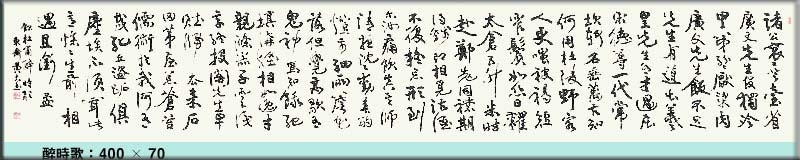 諸公袞袞登臺省
廣文先生官獨冷
甲第紛紛厭粱肉
廣文先生飯不足
先生有道出羲
皇先生有才過屈
宋德尊一代常
坎軻名垂萬古知
何用杜陵野客
人更嗤被褐短
窄鬢如絲日糴
太倉五升米時
赴鄭老同襟期
得錢即相覓沽酒
不復疑忘形到
爾汝痛飲真吾師
清夜沈沈動春酌
燈前細雨簷花
落但覺高歌有
鬼神焉知餓死
填溝壑相如逸才
親滌器子雲識
字終投閣先生早
賦歸去來石
田茅屋荒蒼苔
儒術於我何有
哉孔丘盜跖俱
塵埃不須聞此
意慘愴生前相
遇且銜杯
錄杜甫醉時歌
醉時歌：400 × 70